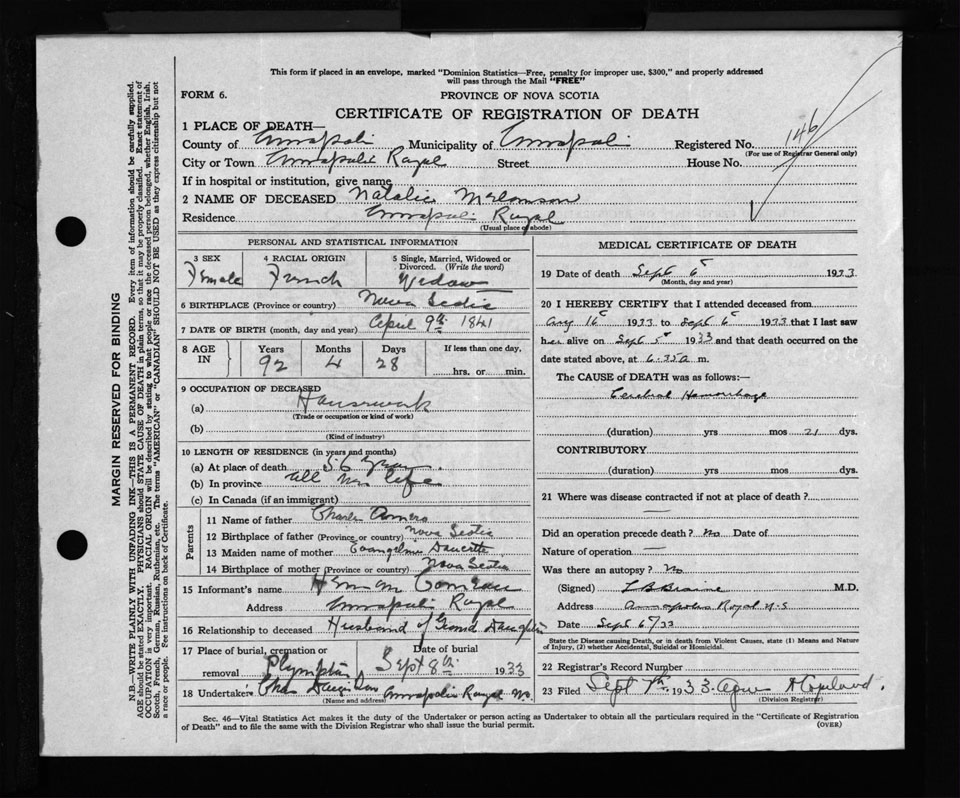 This form if placed in an envelope, marked "Dominion Statistics—Free, penalty for improper use, $300," and properly addressed
will pass through the Mail "FREE"
FORM 6.
PROVINCE OF NOVA SCOTIA
CERTIFICATE OF REGISTRATION OF DEATH
1 PLACE OF DEATH—
County of Annapolis Municipality of Annapolis Registered No. 146
(For use of Registrar General only)
City or Town Annapolis Royal Street House No.
If in hospital or institution, give name
2 NAME OF DECEASED Natalie
Residence Annapolis Royal
(Usual place of abode)
PERSONAL AND STATISTICAL INFORMATION
3 SEX 4 RACIAL ORIGIN 5 Single, Married, Widowed or
Divorced. (Write the word)
Female French Widow
6 BIRTHPLACE (Province or country) Nova Scotia
7 DATE OF BIRTH (month, day and year) April 9th 1841
8 AGE IN Years Months Days If less than one day,
92 4 28 hrs. or min.
9 OCCUPATION OF DECEASED
(a) Housework
(Trade or occupation or kind of work)
(b)
(Kind of industry)
10 LENGTH OF RESIDENCE (in years and months)
(a) At place of death 56 years
(b) In province All life
(c) In Canada (if an immigrant)
Parents
11 Name of father Charles
12 Birthplace of father (Province or country) Nova Scotia
13 Maiden name of mother Doucette
14 Birthplace of mother (Province or country) Nova Scotia
15 Informant's name Herman Comeau
Address Annapolis Royal
16 Relationship to deceased Husband of Grand Daughter
17 Place of burial, cremation or Date of burial
removal Plympton Sept 8th 1933
18 Undertaker Chas Annapolis Royal
(Name and address)
MEDICAL CERTIFICATE OF DEATH
19 Date of death Sept 6 1933
(Month, day and year)
20 I HEREBY CERTIFY that I attended deceased from
Aug 16 1933 to Sept 6 1933 that I last saw
her alive on Sept 5 1933 and that death occurred on the
date stated above, at 6.35 a m.
The CAUSE OF DEATH was as follows:—
Cerebral Hemorrhage
(duration) yrs mos 21 dys.
CONTRIBUTORY
(duration) yrs mos dys.
21 Where was disease contracted if not at place of death?
—
Did an operation precede death? No Date of
Nature of operation —
Was there an autopsy? No
(Signed) L B Braine M.D.
Address Annapolis Royal N-S
Date Sept 6/33
State the Disease causing Death, or in death from Violent Causes, state (1) Means and Nature
of Injury, (2) whether Accidental, Suicidal or Homicidal.
22 Registrar's Record Number
23 Filed Sept 7th 1933 Copeland.
(Division Registrar)
Sec. 46—Vital Statistics Act makes it the duty of the Undertaker or person acting as Undertaker to obtain all the particulars required in the "Certificate of Registration
of Death" and to file the same with the Division Registrar who shall issue the burial permit. (OVER)
MARGIN RESERVED FOR BINDING
N.B.—WRITE PLAINLY WITH UNFADING INK—THIS IS A PERMANENT RECORD. Every item of information should be carefully supplied.
AGE should be stated EXACTLY. PHYSICIANS should STATE CAUSE OF DEATH in plain terms, so that it may be properly classified. Exact statement of
OCCUPATION is very important. RACIAL ORIGIN will be described by stating to what people or race the deceased person belonged, whether English, Irish,
Scotch, French, German, Russian, Ruthenian, etc. The terms "AMERICAN" or "CANADIAN" SHOULD NOT BE USED as they express citizenship but not
a race or people. See instructions on back of Certificate.